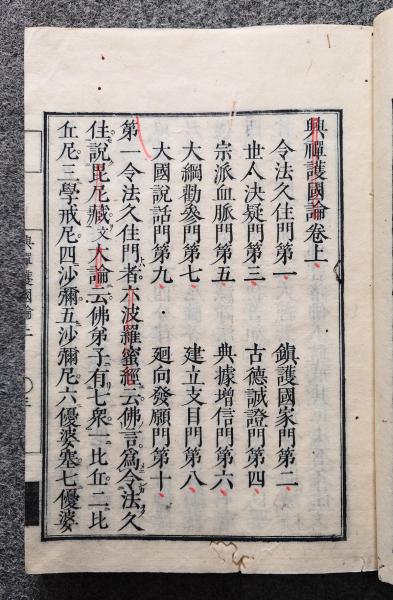 興禪護國論卷上
令法久住門第一 鎮護國家門第二
世人決疑門第三 古德誠證門第四
宗派血脈門第五 典據增信門第六
大綱勸參門第七 建立支目門第八
大國說話門第九 廻向發願門第十
第一令法久住門者六波羅蜜經云佛言爲令法久
住說毘尼藏文大論云佛弟子有七衆一比丘二比
丘尼三學戒尼四沙彌五沙彌尼六優婆塞七優婆
興禪護國論上